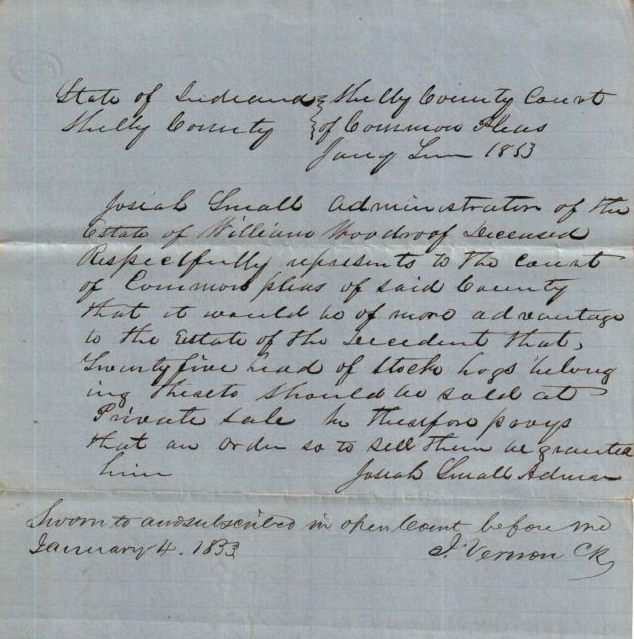 State of Indiana } Shelby County Court
Shelby County } of Common Pleas
Jany Term 1853
Josiah Small Administrator of the
Estate of William Woodroof Deceased
Respectfully represents to the court
of Common pleas of said County
that it would be of more advantage
to the Estate of the Decedent that,
Twenty five head of stock hogs belong
ing thereto should be sold at
Private sale he therefore prays
that an order so to sell them be granted
him
Josiah Small Admr
Sworn to and subscribed in open Court before me
January 4. 1853
J. Vernon Clk